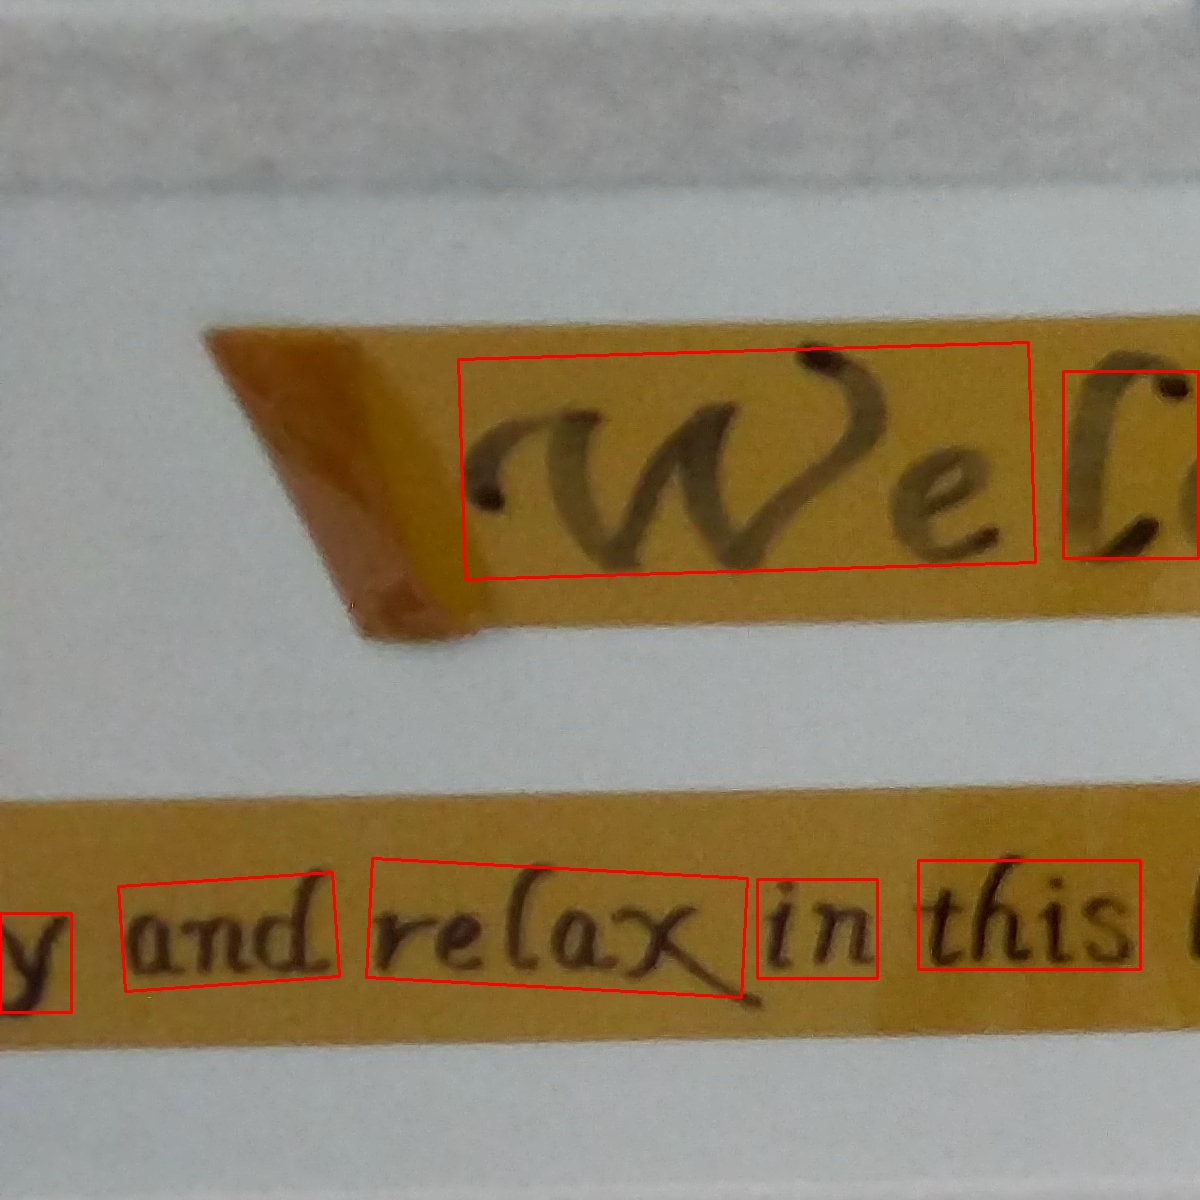 We
y and relax in this